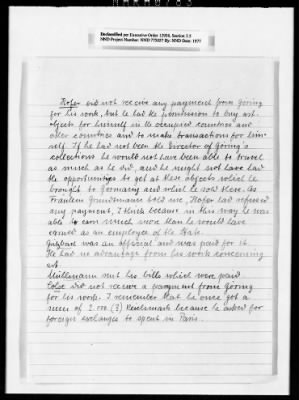 Declassified per Executive Order 12958, Section 3.5
NND Project Number: NND 775057 By: NND Date: 1977
Hofer did not receive any payment from Göring
for his work, but he had the permission to buy art-
objects for himself in the occupied countries and
other countries and to make transactions for him-
self. If he had not been the Director of Göring's
collections he would not have been able to travel
as much as he did, and he might not have had
the opportunities to get at these objects which he
brought to Germany and which he sold there. As
Fräulein Grundmann told me, Hofer had refused
any payment, I think because in this way he was
able to earn much more than he would have
earned as an employee of the State.
was an official and was paid for it.
He had no advantage from his work concerning
art.
sent his bills which were paid
did not receive a payment from Göring
for his work. I remember that he once got a
sum of 2.000 (3) Reichmark because he asked for
foreign exchanges to spent in Paris.